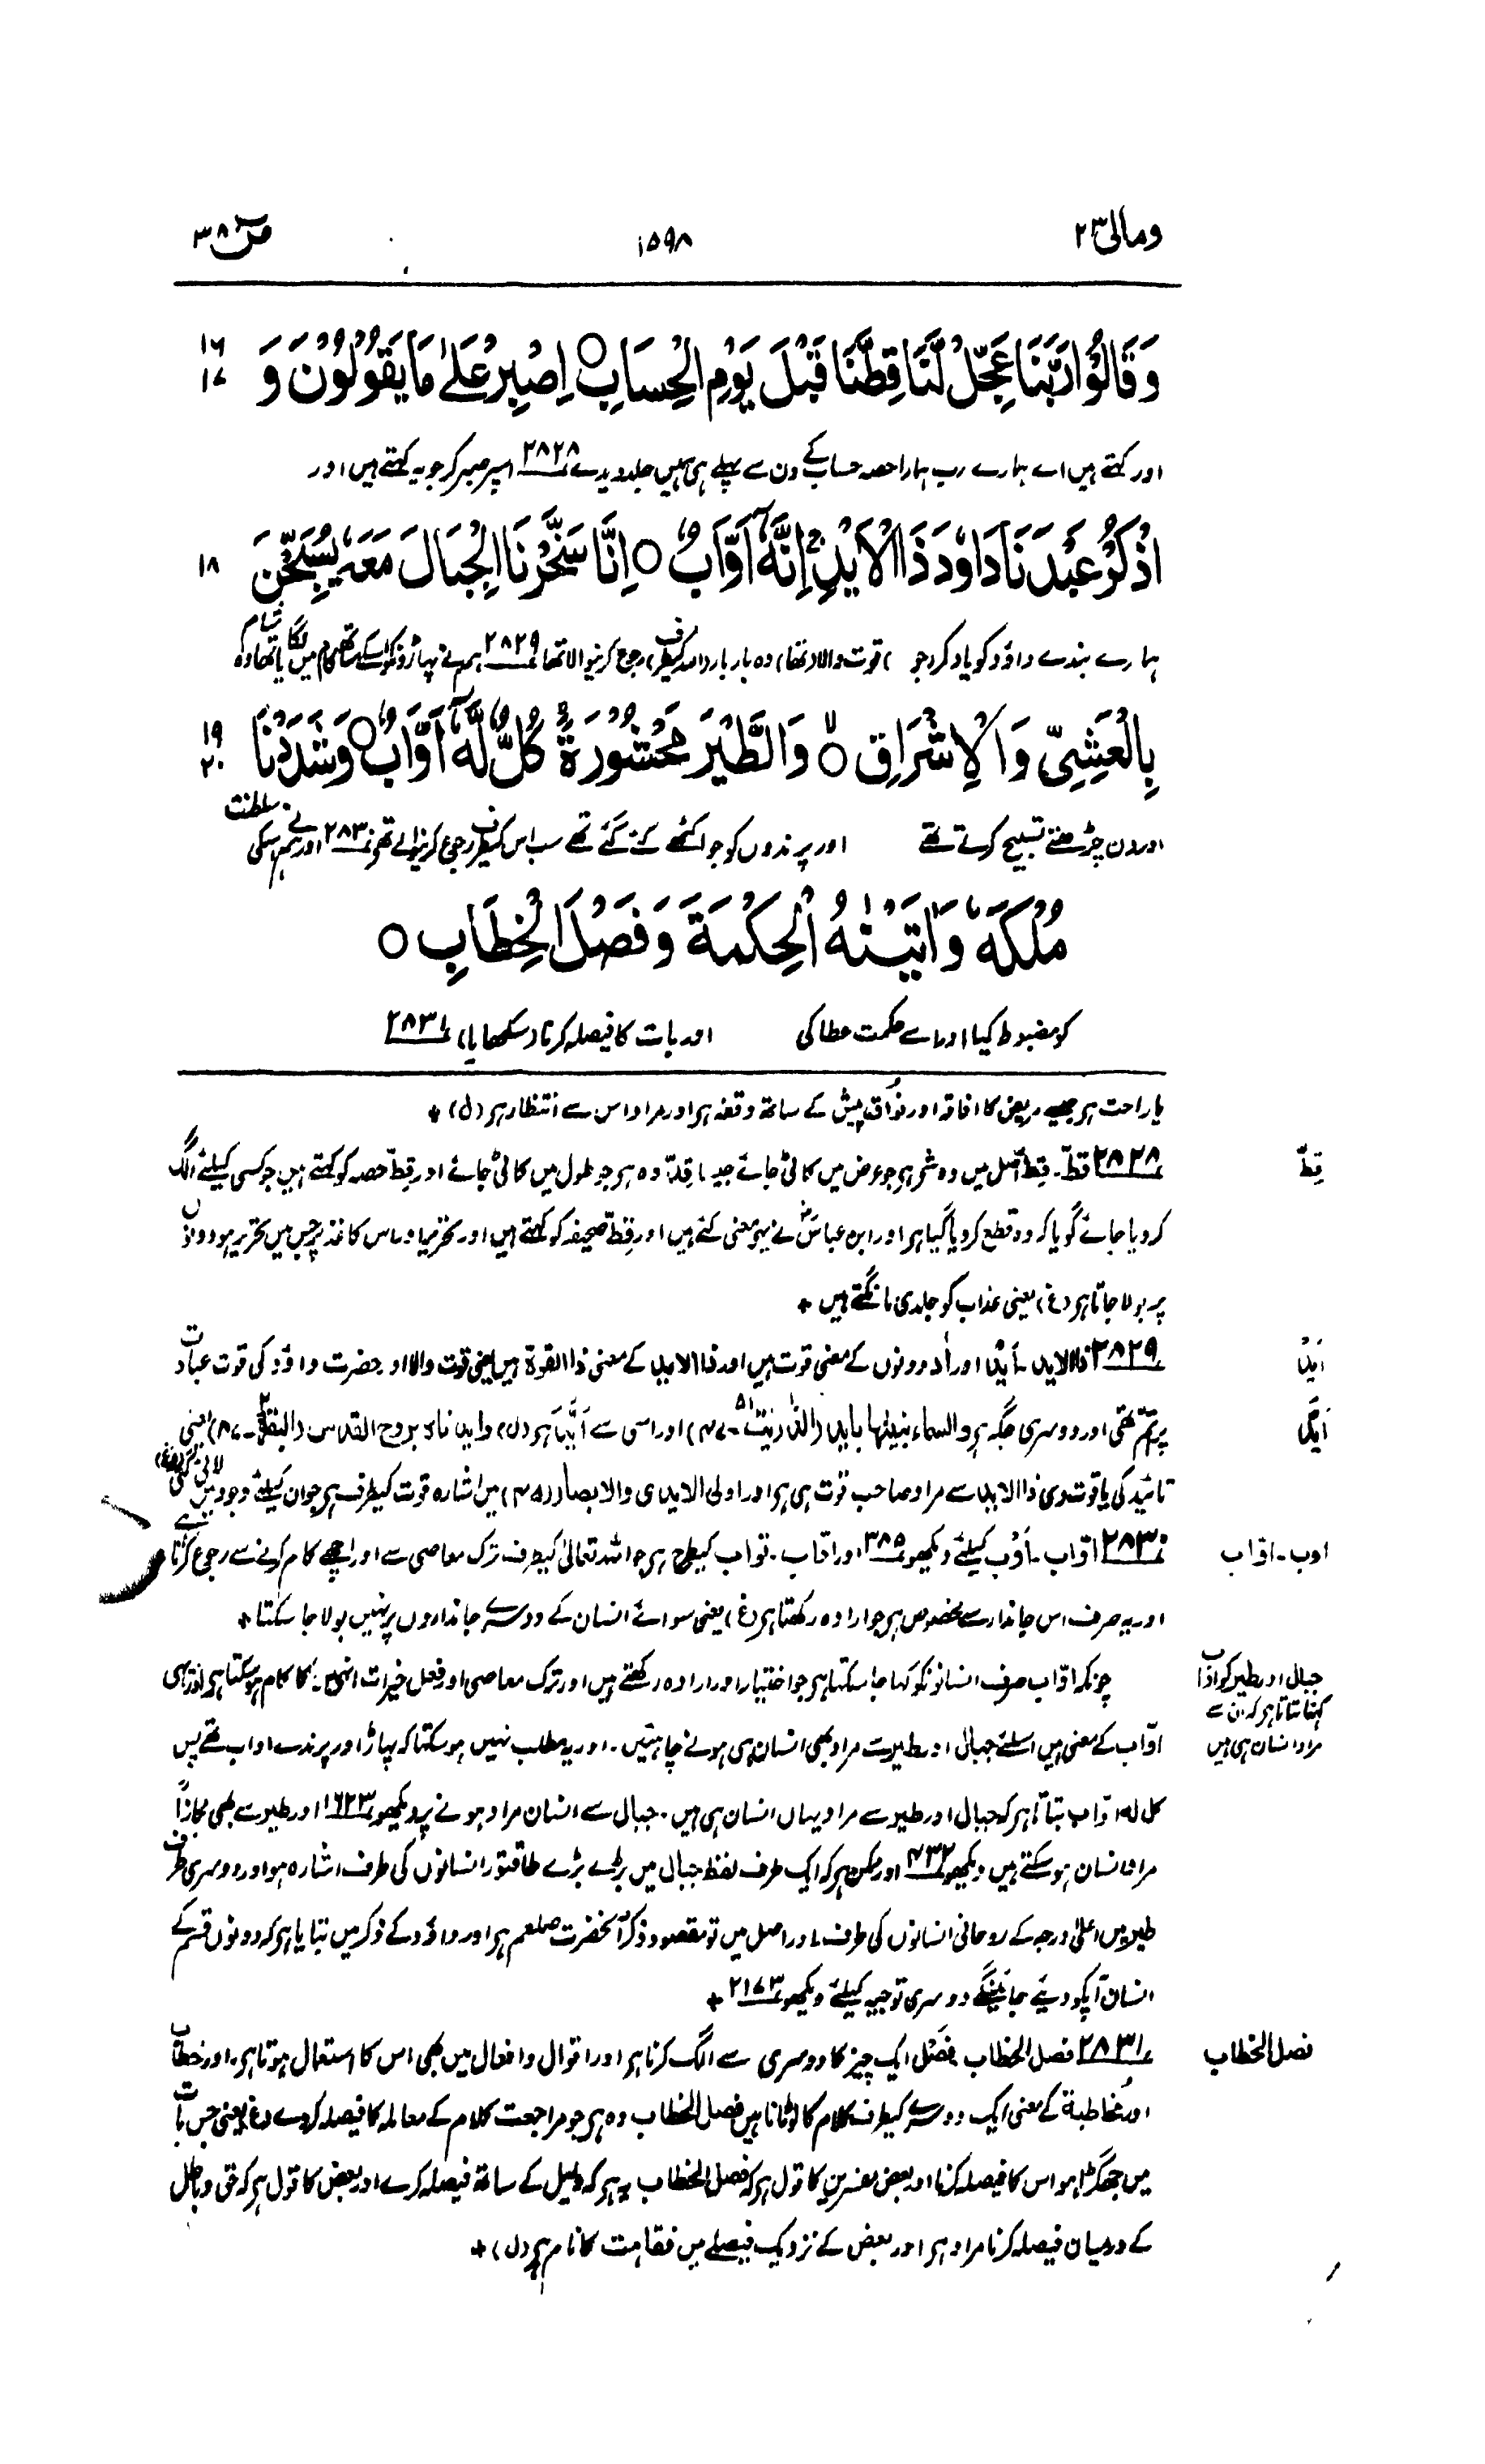 ومالی ۲۳
۱۵۹۸
ص ۳۸
وَقَالُوْا رَبَّنَا عَجِّلْ لَّنَا قِطَّنَا قَبْلَ يَوْمِ الْحِسَابِ ○ اِصْبِرْ عَلٰى مَا يَقُوْلُوْنَ وَ
۱۶
۱۷
اور کہتے ہیں اے ہمارے رب ہمارا حصہ حساب کے دن سے پہلے ہی ہمیں جلد دیدے ۲۸۲۸ اسپر صبر کر جو یہ کہتے ہیں اور
اذْكُرْ عَبْدَنَا دَاوٗدَ ذَا الْاَيْدِ ۚ اِنَّهٗۤ اَوَّابٌ ○ اِنَّا سَخَّرْنَا الْجِبَالَ مَعَهٗ يُسَبِّحْنَ
۱۸
ہمارے بندے داؤد کو یاد کر (جو) قوت والا (تھا) وہ بار بار (اللہ کیطرف) رجوع کرنیوالا تھا ۲۸۲۹ ہم نے پہاڑوں کو اسکے ساتھ کام میں لگایا تھا وہ شام
بِالْعَشِيِّ وَالْاِشْرَاقِ ○ۙ وَالطَّيْرَ مَحْشُوْرَةً ؕ كُلٌّ لَّهٗۤ اَوَّابٌ ○ وَشَدَدْنَا
۱۹
۲۰
اور دن چڑھتے تسبیح کرتے تھے اور پرندوں کو جو اکٹھے کئے گئے تھے سب اس کیطرف رجوع کرنیوالے تھے ۲۸۳۰ اور ہم نے اسکی سلطنت
مُلْكَهٗ وَاٰتَيْنٰهُ الْحِكْمَةَ وَفَصْلَ الْخِطَابِ ○
کو مضبوط کیا اور اسے حکمت عطا کی اور بات کا فیصلہ کرنا (سکھایا) ۲۸۳۱
یا راحت ہر جیسے مریض کا افاقہ اور فواق پیش کے ساتھ وقفہ ہر اور مراد اس سے انتظار ہر (ل) +
قِطّ
۲۸۲۸ قطّ۔ قِطّ اصل میں وہ شے ہر جو عرض میں کاٹی جائے جیسا قِدّ وہ ہر جو طول میں کاٹی جائے اور قِطّ حصہ کو کہتے ہیں جو کسی کیلئے الگ
کر دیا جائے گویا کہ وہ قطع کر دیا گیا ہر اور ابن عباسؓ نے یہی معنی کئے ہیں اور قِطّ صحیفہ کو کہتے ہیں اور تحریر اور اس کاغذ پر جس میں تحریر ہو دونوں
پر بولا جاتا ہر (غ) یعنی عذاب کو جلدی مانگتے ہیں +
اَیْد
۲۸۲۹ ذا الاید۔ اَیْد اور اٰد دونوں کے معنی قوت ہیں اور ذا الاید کے معنی ذا القوۃ ہیں یعنی قوت والا اور حضرت داؤد کی قوت عبادت
اَیَّدَ
پر تھی اور دوسری جگہ ہر والسماء بنینٰہا باید (الذّٰریٰت ۵۱۔۴۷) اور اسی سے اَیَّدَ ہر (ل) وایدناہ بروح القدس (البقرۃ ۲۔۸۷) یعنی
تائید کی یا قوت دی ذا الاید سے مراد صاحب قوت ہی ہر اور اولی الایدی والابصار (۴۵) میں اشارہ قوت کیطرف ہر جو ان کیلئے وجود میں لائی گئی (غ)
اوب۔ اوّاب
۲۸۳۰ اوّاب۔ اَوْب کیلئے دیکھو ۳۸۵ اور اوّاب۔ توّاب کیطرح ہر جو اللہ تعالیٰ کیطرف ترک معاصی سے اور اچھے کام کرنے سے رجوع کرتا ہے
اور یہ صرف اس جاندار سے مخصوص ہر جو ارادہ رکھتا ہر (غ) یعنی سوائے انسان کے دوسرے جانداروں پر نہیں بولا جا سکتا +
جبال اور طیر کو اوّاب
کہنا بتاتا ہر کہ ان سے
مراد انسان ہی ہیں
چونکہ اوّاب صرف انسانونکو کہا جا سکتا ہر جو اختیار اور ارادہ رکھتے ہیں اور ترک معاصی اور فعل خیرات انہیں کا کام ہو سکتا ہر اور یہی
اوّاب کے معنی ہیں اسلئے جبال اور طیر سے مراد بھی انسان ہی ہونے چاہئیں۔ اور یہ مطلب نہیں ہو سکتا کہ پہاڑ اور پرندے اوّاب تھے پس
کل لہ اوّاب بتاتا ہر کہ جبال اور طیر سے مراد یہاں انسان ہی ہیں۔ جبال سے انسان مراد ہونے پر دیکھو ۱۶۲۳ اور طیر سے بھی مجازاً
مراد انسان ہو سکتے ہیں دیکھو ۴۳۲ اور ممکن ہر کہ ایک طرف لفظ جبال میں بڑے بڑے طاقتور انسانوں کی طرف اشارہ ہو اور دوسری طرف
طیر میں اعلیٰ درجہ کے روحانی انسانوں کی طرف۔ اور اصل میں تو مقصود ذکر آنحضرت صلعم ہر اور داؤد کے ذکر میں بتایا ہر کہ دونوں قسم کے
انسان آپکو دیئے جائینگے دوسری توجیہ کیلئے دیکھو ۲۱۷۳ +
فصل الخطاب
۲۸۳۱ فصل الخطاب۔ فَصْل ایک چیز کا دوسری سے الگ کرنا ہر اور اقوال و افعال میں بھی اس کا استعمال ہوتا ہر۔ اور خطاب
اور مُخاطبۃ کے معنی ایک دوسرے کیطرف کلام کا لوٹانا ہیں فصل الخطاب وہ ہر جو مراجعت کلام کے معاملہ کا فیصلہ کر دے (غ) یعنی جس بات
میں جھگڑا ہو اس کا فیصلہ کرنا اور بعض مفسرین کا قول ہر کہ فصل الخطاب یہ ہر کہ دلیل کے ساتھ فیصلہ کرے اور بعض کا قول ہر کہ حق و باطل
کے درمیان فیصلہ کرنا مراد ہر اور بعض کے نزدیک فیصلے میں فقاہت کا نام ہر (ل) +